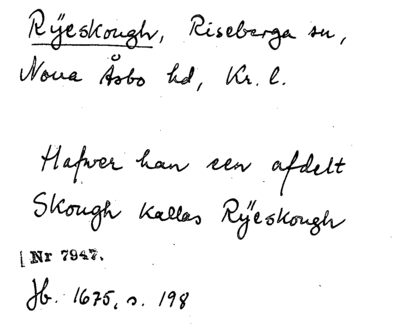 Rÿeskough, Riseberga sn,
Norra Åsbo hd, Kr. l.
Hafwer han een afdelt
Skough kallas Rÿeskough
[ Nr 7947.
Jb. 1675, s. 198